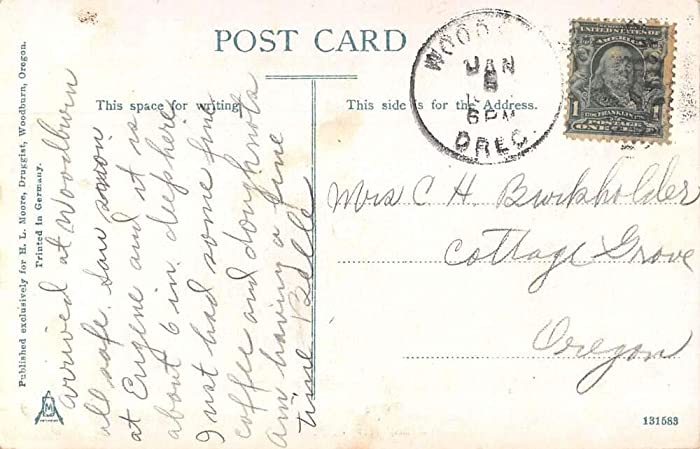 POST CARD
This space for writing.
This side is for the Address.
WOOD
JAN
6PM
OREG.
UNITED STATES OF
1
POSTAGE
ONE CENT
Mrs C H Burkholder
Cottage Grove
Oregon
arrived at Woodburn
all safe. saw snow
at Eugene and it is
about 6 in. deep here
I just had some fine
coffee and doughnuts
am having a fine
time Belle
Published exclusively for H. L. Moore, Druggist, Woodburn, Oregon.
Printed in Germany.
131583